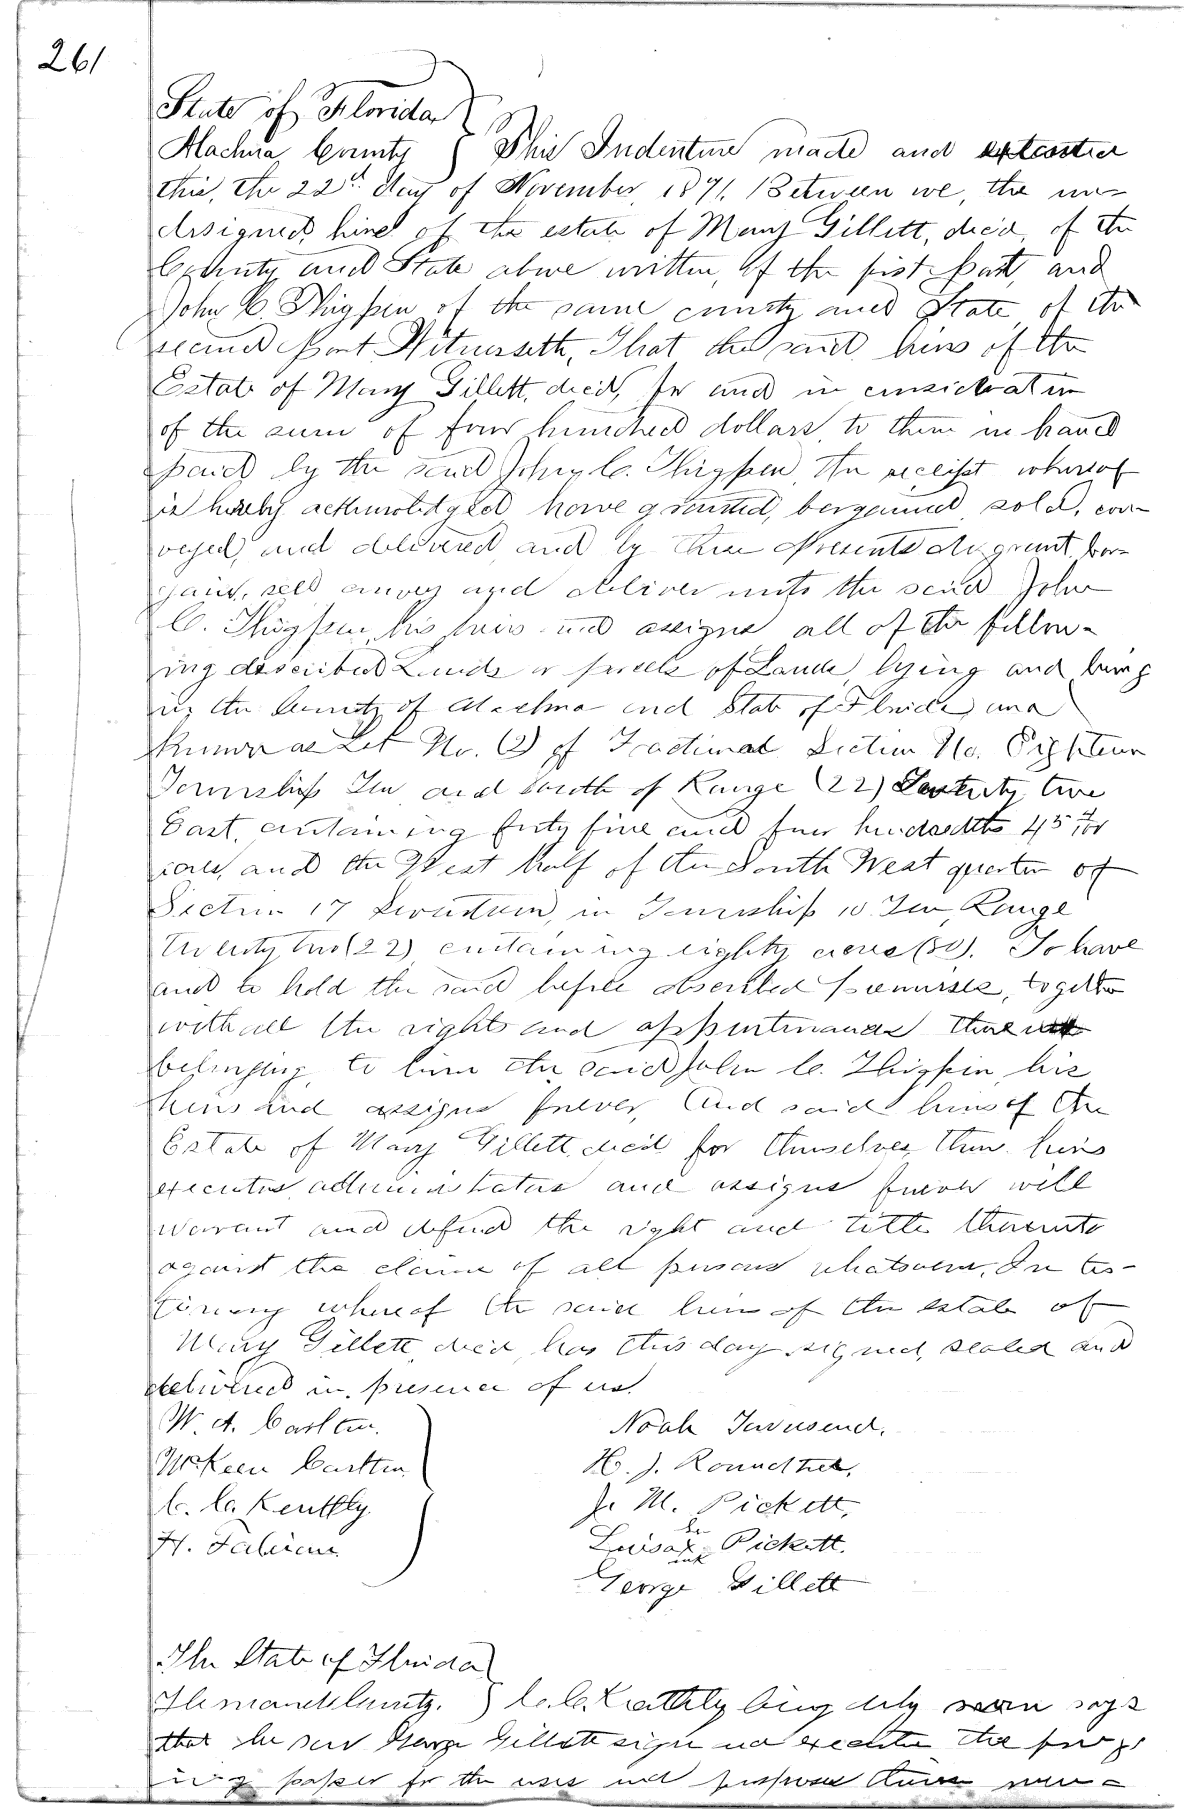 261
State of Florida
Alachua County } This Indenture made and extended
this, the 22d day of November, 1871. Between we, the un-
dersigned, hires of the estate of Mary Gillett, dec'd, of the
County and State above written, of the first part, and
John C. Thigpen of the same county and State, of the
second part Witnesseth, That the said hires of the
Estate of Mary Gillett, dec'd, for and in consideration
of the sum of four hundred dollars, to them in hand
paid by the said John C. Thigpen, the receipt whereof
is hereby acknowledged have granted, bargained, sold, con-
veyed, and delivered, and by these Presents do grant, bar-
gain, sell convey and deliver unto the said John
C. Thigpen, his heirs and assigns all of the follow-
ing described Lands or parcels of Land, lying and being
in the County of Alachua and State of Florida, and
Known as Lot No. (2) of Fractional Section No. Eighteen
Township Ten and South of Range (22) Twenty two
East, containing forty five and four hundredths 45 4/100
acres, and the West half of the South West quarter of
Section 17 Seventeen, in Township 10 Ten, Range
Twenty two (22), containing eighty acres (80). To have
and to hold the said before described premises, together
with all the rights and appurtenances there
belonging, to him the said John C. Thigpin, his
heirs and assigns forever, And said heirs of the
Estate of Mary Gillett, dec'd for themselves, their heirs
executors, administrators and assigns forever will
warrant and defend the right and title thereunto
against the claim of all persons whatsoever, In tes-
timony whereof the said heirs of the estate of
Mary Gillett, dec'd, has this day signed, sealed and
delivered in presence of us.
W. A. Carlton.
Noah Townsend.
McKeen Carlton
H. J. Roundtree.
C. C. Keathly
J. M. Pickett,
H. Fabian
Luisa x Pickett.
George Gillett
The State of Florida
Hernando County. } C. C. Keathly being duly sworn says
that he saw George Gillett sign and execute the forego
ing paper for the uses and purposes therein men-